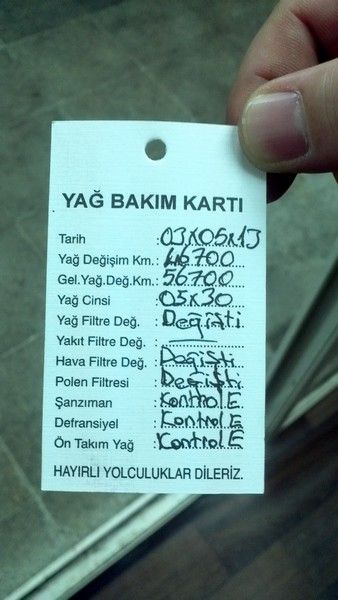 YAĞ BAKIM KARTI
Tarih : 03x05x13
Yağ Değişim Km.: 46700
Gel.Yağ.Değ.Km.: 56700
Yağ Cinsi : 05x30
Yağ Filtre Değ. : Değişti
Yakıt Filtre Değ. : —
Hava Filtre Değ. : Değişti
Polen Filtresi : Değişti
Şanzıman : KontrolE
Defransiyel : KontrolE
Ön Takım Yağ : KontrolE
HAYIRLI YOLCULUKLAR DİLERİZ.